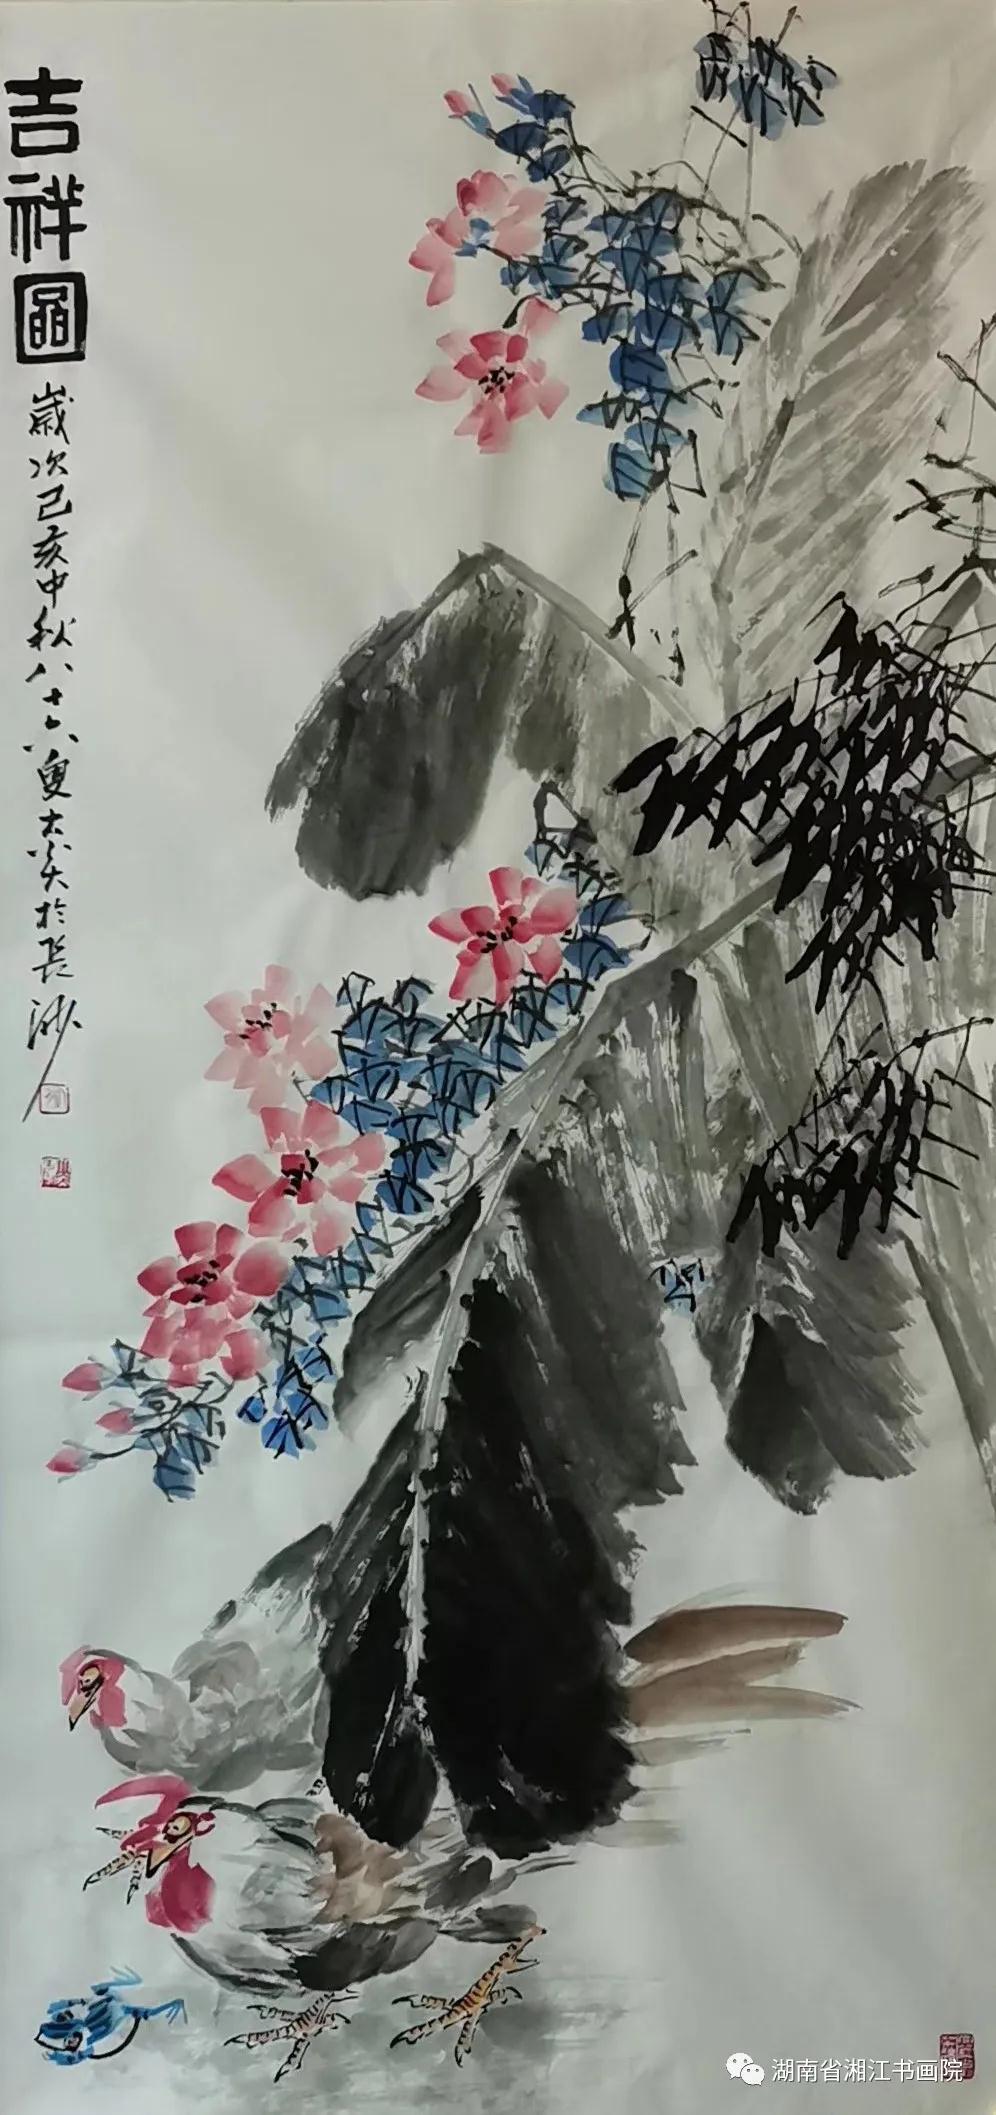 吉祥圖
歲次己亥中秋八十六叟大尖於長沙
湖南省湘江书画院